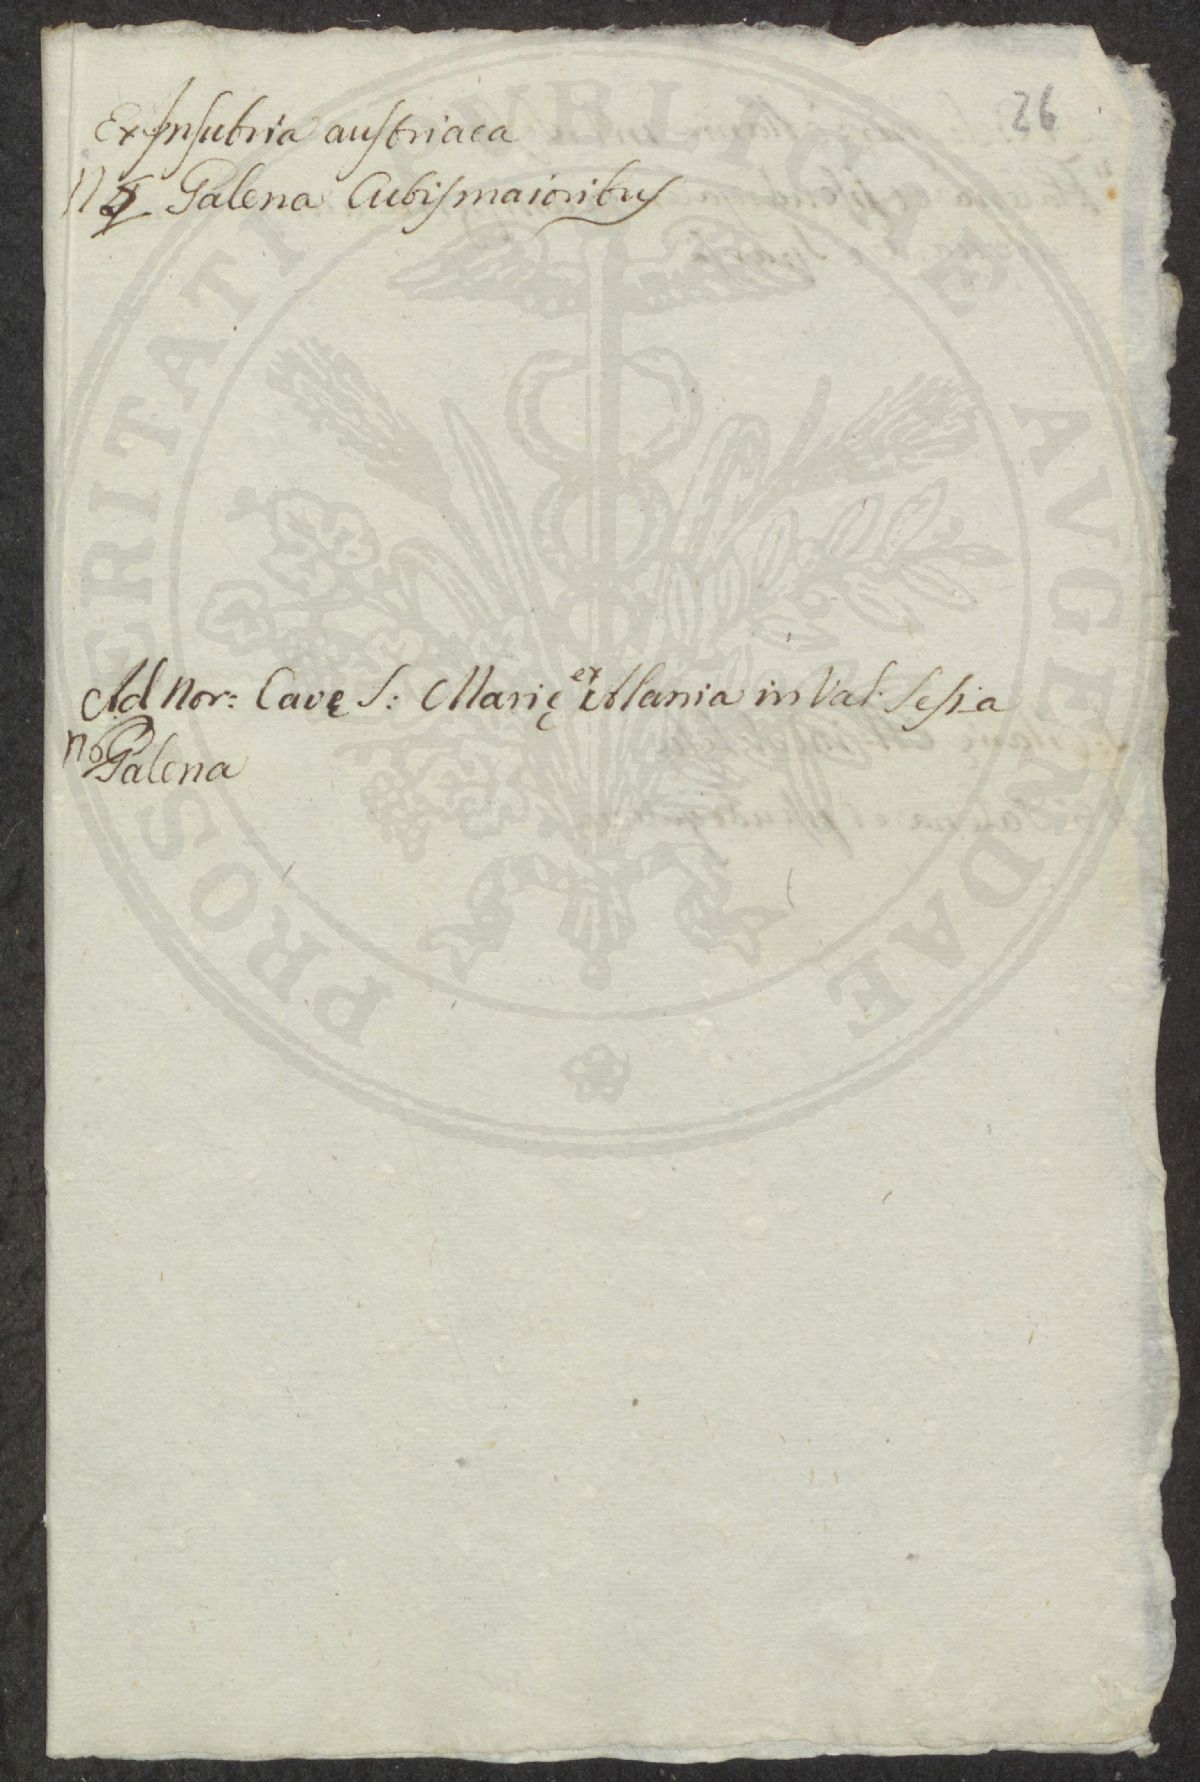 26
Ex Insubria austriaca
N Galena Cubis maioribus
Ad Nor: Cavę S: Marię ex Alania in Val Sesia
n 6 Galena
PROSPERITATI PVBLICAE AVGENDAE